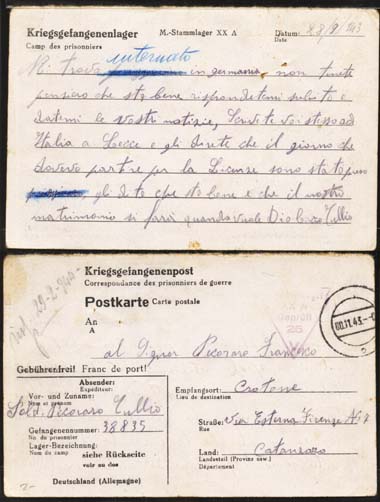 Kriegsgefangenenlager M.-Stammlager XX A Datum: 28/9/943
Camp des prisonniers Date
Mi trovo internato in germania, non tenete
pensiero che sto bene rispondetemi subito e
datemi le vostre notizie, Scrivete voi stesso ad
Italia a Lecce e gli direte che il giorno che
dovevo partire per la Licenza sono stato preso
gli dite che sto bene e che il nostro
matrimonio si farà quando vuole Dio Tullio
Kriegsgefangenenpost
Correspondance des prisonniers de guerre
Postkarte Carte postale
29-2-944
An
A
Geprüft
26
00.11.43.
al Signor Pecoraro Francesco
Gebührenfrei! Franc de port!
Absender:
Expéditeur:
Vor- und Zuname:
Nom et prénom
Sold. Pecoraro Tullio
Gefangenennummer: 38835
No. du prisonnier
Lager-Bezeichnung:
Nom du camp
siehe Rückseite
voir au dos
Deutschland (Allemagne)
Empfangsort: Crotone
Lieu de destination
Straße: Via Esterna Firenze N 7
Rue
Land: Catanzaro
Landesteil (Provinz usw.)
Département
2-